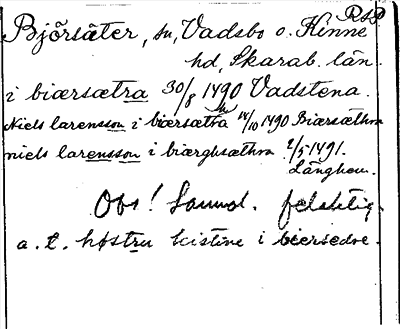 RSP
Björsäter, sn, Vadsbo o. Kinne
hd, Skarab. län.
i biærsætra 30/8 1490 Vadstena.
Niels larensson i biærsætra 14/10 1490 Biærsæthra
niels larensson i biærghsæthra 2/5 1491.
Långhem.
Obs! Samml. felaktig.
a. t. høstru kistine i biersedre.